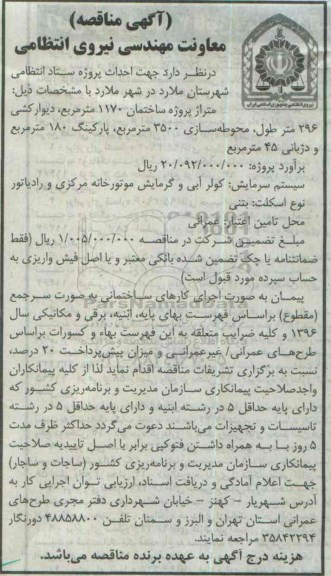 (آگهی مناقصه)
معاونت مهندسی نیروی انتظامی
درنظر دارد جهت احداث پروژه ستاد انتظامی
شهرستان ملارد در شهر ملارد با مشخصات ذیل:
متراژ پروژه ساختمان ۱۱۷۰ مترمربع، دیوارکشی
۲۹۶ متر طول، محوطه‌سازی ۳۵۰۰ مترمربع، پارکینگ ۱۸۰ مترمربع
و دژبانی ۴۵ مترمربع
برآورد پروژه: ۲۰/۰۹۲/۰۰۰/۰۰۰ ریال
سیستم سرمایش: کولر آبی و گرمایش موتورخانه مرکزی و رادیاتور
نوع اسکلت: بتنی
محل تامین اعتبار: عمرانی
مبلغ تضمین شرکت در مناقصه ۱/۰۰۵/۰۰۰/۰۰۰ ریال (فقط
ضمانتنامه یا چک تضمین شده بانکی معتبر و یا اصل فیش واریزی به
حساب سپرده مورد قبول است)
پیمان به صورت اجرای کارهای ساختمانی به صورت سرجمع
(مقطوع) براساس فهرست بهای پایه، ابنیه، برقی و مکانیکی سال
۱۳۹۶ و کلیه ضرایب متعلقه به این فهرست بهاء و کسورات براساس
طرح‌های عمرانی/ غیرعمرانی و میزان پیش‌پرداخت ۲۰ درصد،
نسبت به برگزاری تشریفات مناقصه اقدام نماید لذا از کلیه پیمانکاران
واجدصلاحیت پیمانکاری سازمان مدیریت و برنامه‌ریزی کشور که
دارای پایه حداقل ۵ در رشته ابنیه و دارای پایه حداقل ۵ در رشته
تاسیسات و تجهیزات می‌باشند دعوت می‌گردد حداکثر ظرف مدت
۵ روز با به همراه داشتن فتوکپی برابر با اصل تاییدیه صلاحیت
پیمانکاری سازمان مدیریت و برنامه‌ریزی کشور (ساجات و ساجار)
جهت اعلام آمادگی و دریافت اسناد، ارزیابی توان اجرایی کار به
آدرس شهریار - کهنز - خیابان شهرداری دفتر مجری طرح‌های
عمرانی استان تهران و البرز و سمنان تلفن ۴۸۸۵۸۸۰۰ دورنگار
۳۵۸۴۲۲۹۴ مراجعه نمایند.
هزینه درج آگهی به عهده برنده مناقصه می‌باشد.